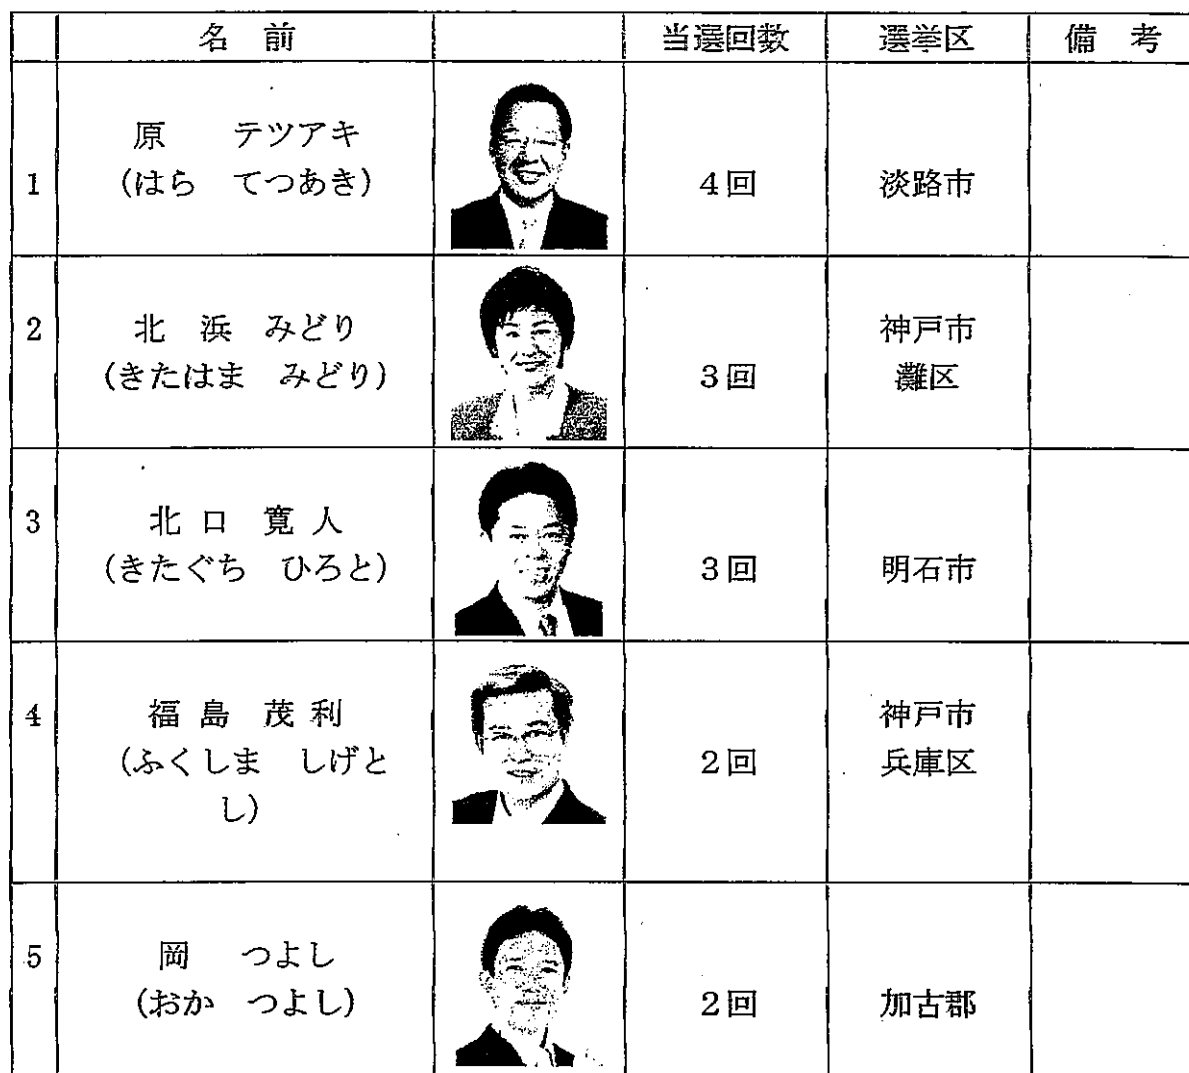 名 前 当選回数 選挙区 備 考
原 テツアキ
1 (はら てつあき) 4回 淡路市
2 北 浜 みどり 神戸市
(きたはま みどり) 3回 灘区
3 北 口 寛 人
(きたぐち ひろと) 3回 明石市
4 福 島 茂 利 神戸市
(ふくしま しげと 2回 兵庫区
し)
5 岡 つよし
(おか つよし) 2回 加古郡